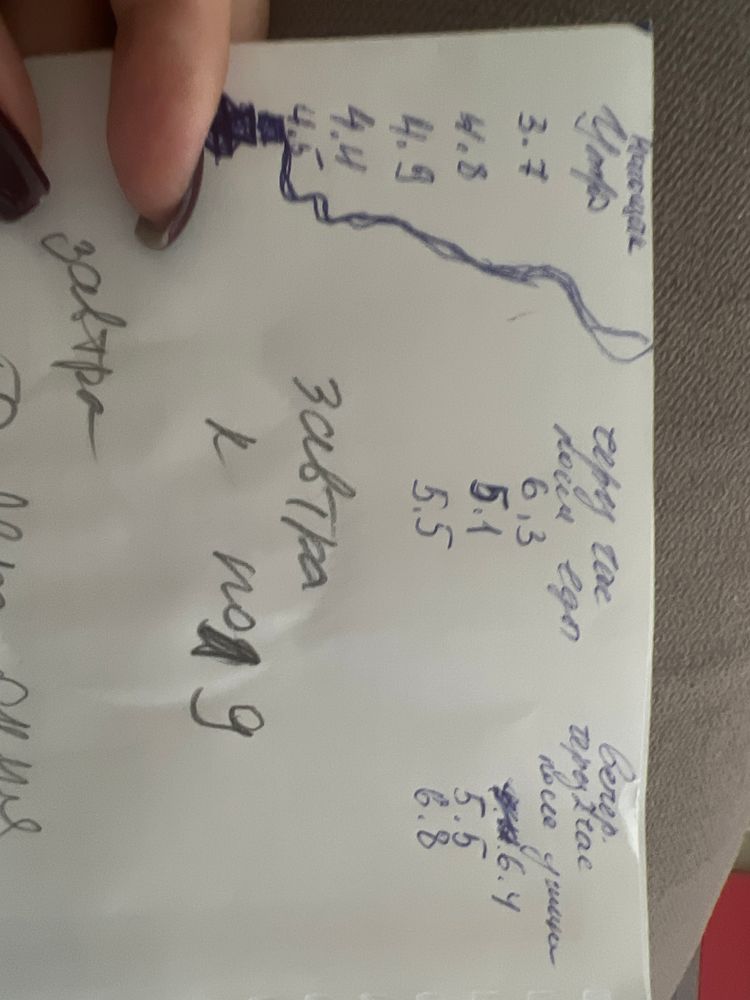 натощак
Утро
3.7
4.8
4.9
4.4
4.5
через час
после еды
6,3
5.1
5.5
Вечер.
через 2 час
после ужина
6.4
5.5
6.8
завтра
к
завтра